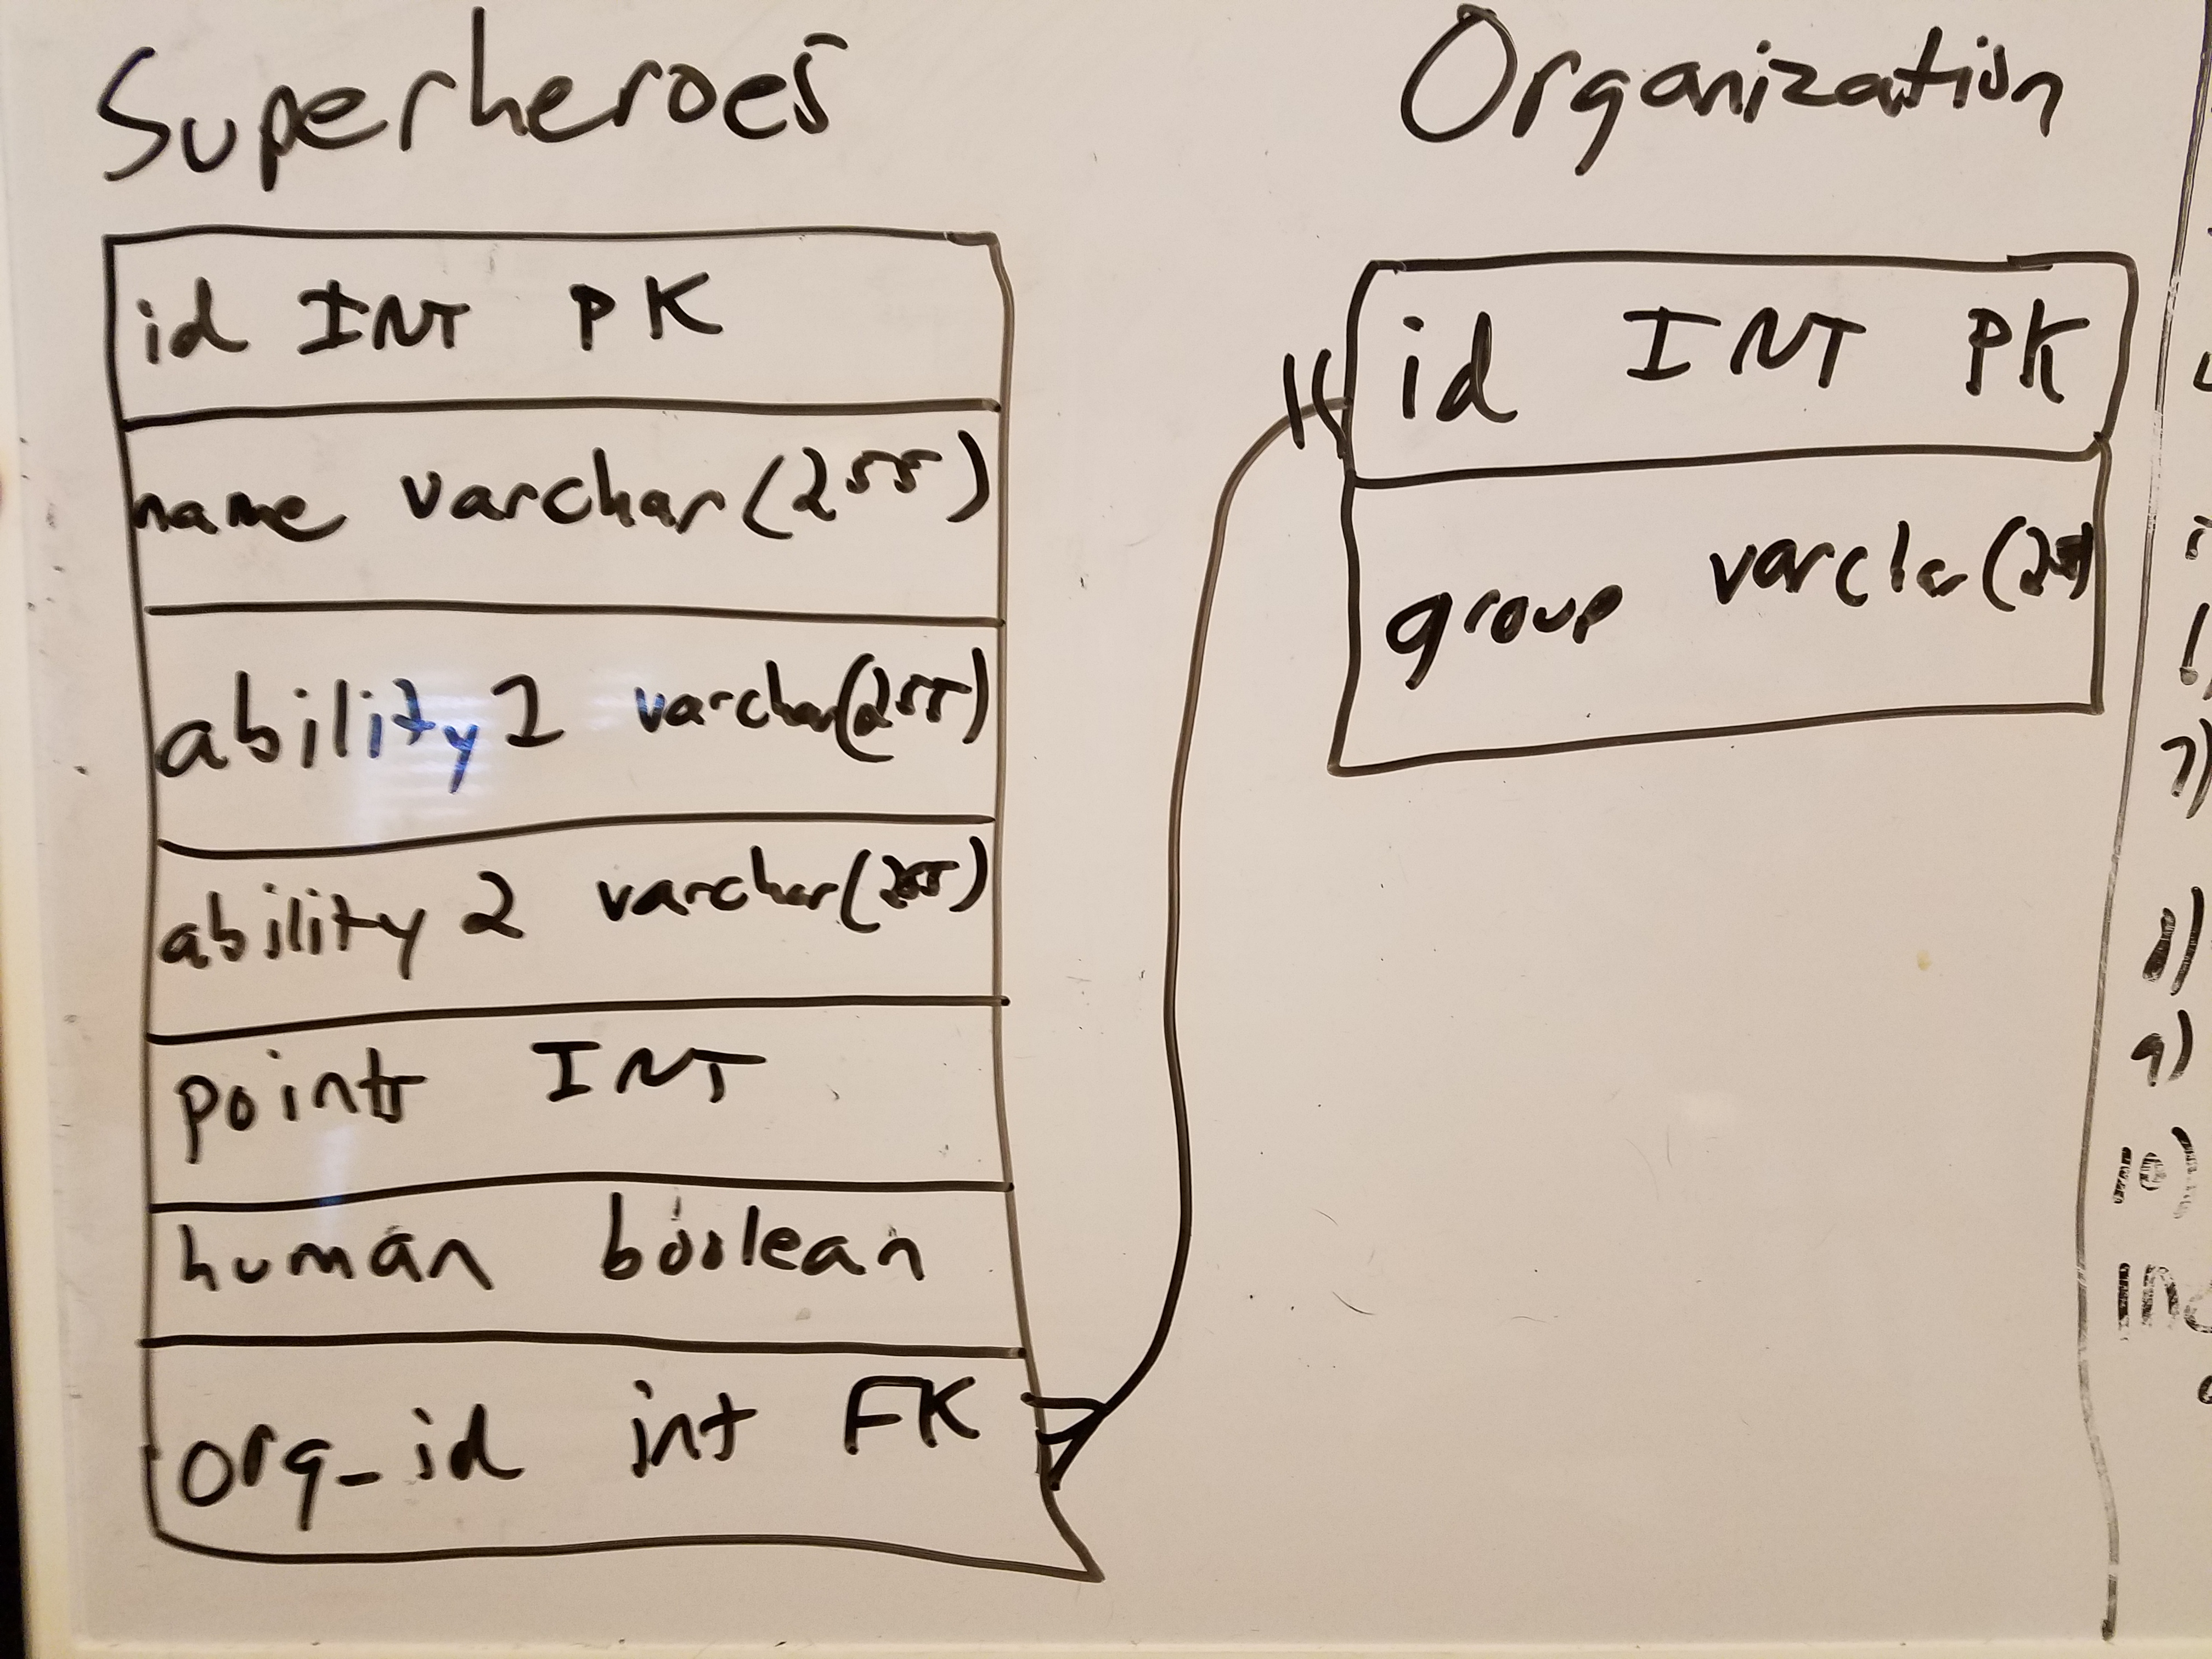 Superheroes
id INT PK
name varchar(255)
ability 1 varchar(255)
ability 2 varchar(255)
points INT
human boolean
org_id int FK
Organization
id INT PK
group varchar(255)
7)
8)
9)
10)